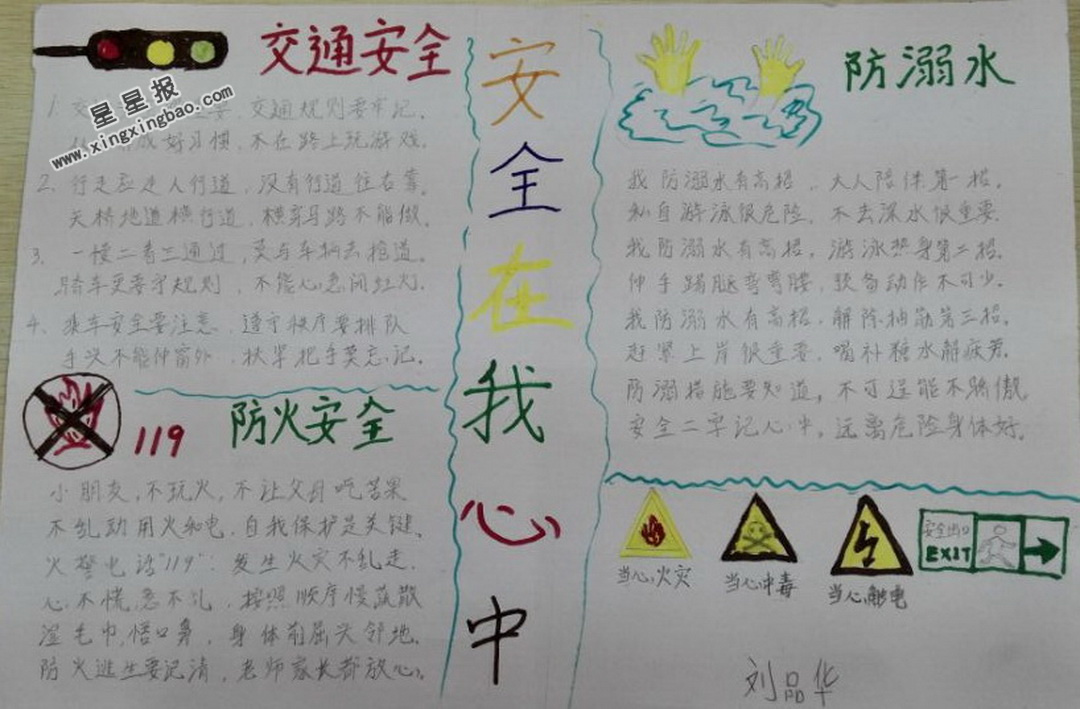 交通安全
星星报
www.xingxingbao.com
1. 交 要 交通规则要牢记。
成好习惯，不在路上玩游戏。
2. 行走应走人行道，没有行道往右靠。
天桥地道横行道，横穿马路不能做。
3. 一慢二看三通过，莫与车辆去抢道。
骑车更要守规则，不能心急闯红灯。
4. 乘车安全要注意，遵守秩序要排队
手头不能伸窗外，扶紧把手莫忘记。
119 防火安全
小朋友，不玩火，不让父母吃苦果
不乱动用火和电，自我保护是关键、
火警电话"119"：发生火灾不乱走、
心不慌，急不乱，按照顺序慢疏散
湿毛巾，捂口鼻，身体前屈头邻地、
防火逃生要记清，老师家长都放心。
安全在我心中
防溺水
我防溺水有高招，大人陪伴第一招。
私自游泳很危险，不去深水很重要.
我防溺水有高招，游泳热身第二招。
伸手踢腿弯弯腰，预备动作不可少。
我防溺水有高招，解除抽筋第三招。
赶紧上岸很重要，喝补糖水解疲劳。
防溺措施要知道，不可逞能不骄傲。
安全二字记心中，远离危险身体好。
当心火灾
当心中毒
当心触电
安全出口
EXIT
刘品华